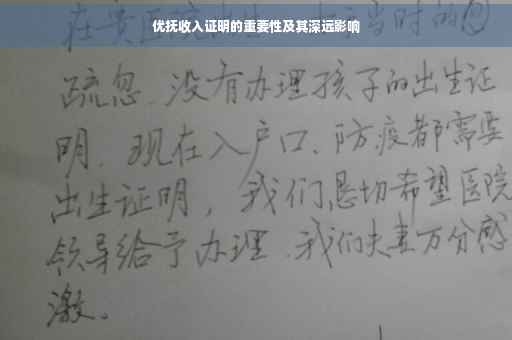 优抚收入证明的重要性及其深远影响
在贵医院出生，当时的
疏忽、没有办理孩子的出生证
明．现在入户口、防疫都需要
出生证明，我们恳切希望医院
领导给予办理．我们夫妻万分感
激。